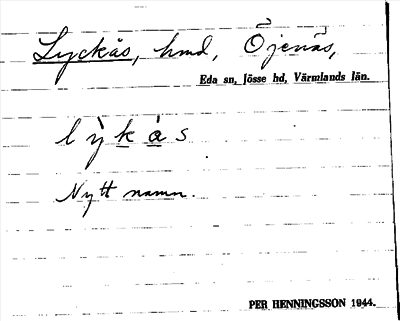 Lyckås, hmd, Öjenäs,
Eda sn, Jösse hd, Värmlands län.
lỳkås
Nytt namn.
PER HENNINGSSON 1944.